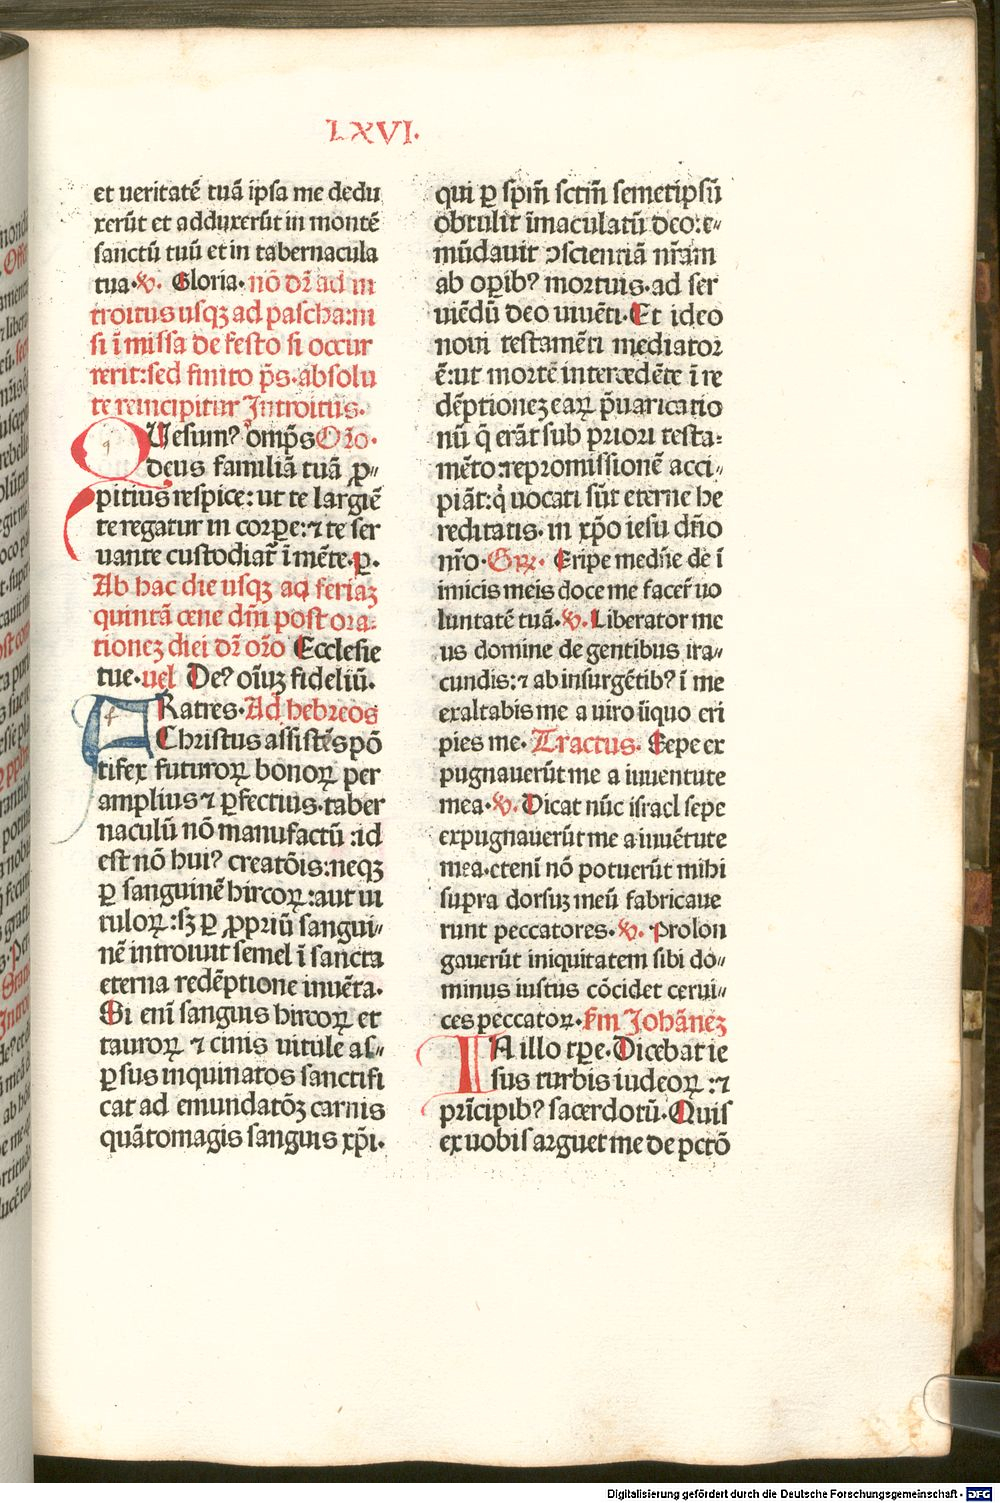 LXVI.
et ueritatē tuā ipsa me dedu
xerūt et adduxerūt in montē
sanctū tuū et in tabernacula
tua. ℣. Gloria. nō dr̄ ad in
troitus usqꝫ ad pascha: ni
si ī missa de festo si occur
rerit: sed finito p̄s. absolu
te reincipitur Introitus.
QUesumꝰ omp̄s Or̄o.
deus familiā tuā ꝓ⸗
pitius respice: ut te largiē
te regatur in corꝑe: ⁊ te ser
uante custodiat̄ ī mēte. ꝑ.
Ab hac die usqꝫ ad feriaꝫ
quintā cene dn̄i post ora⸗
tionez diei dr̄ or̄o Ecclesie
tue. uel Deꝰ oīuꝫ fideliū.
FRatres. Ad hebreos
Christus assistēs pō
tifex futuroꝝ bonoꝝ per
amplius ⁊ ꝑfectius. taber
naculū nō manufactū: id
est nō huiꝰ creatōis: neqꝫ
ꝑ sanguinē hircoꝝ: aut ui
tuloꝝ: sꝫ ꝑ ꝓpriū sangui⸗
nē introiuit semel ī sancta
eterna redēptione inuēta.
Si enī sanguis hircoꝝ et
tauroꝝ ⁊ cinis uitule as⸗
ꝑsus inquinatos sanctifi
cat ad emundatōꝫ carnis
quātomagis sanguis xp̄i.
qui ꝑ sp̄m sctm̄ semetip̄sū
obtulit īmaculatū deo: e⸗
mūdauit ꝯscientiā nr̄am
ab oꝑibꝰ mortuis. ad ser
uiēdū deo uiuēti. Et ideo
noui testamēti mediator
ē: ut mortē intercedēte ī re
dēptionez eaꝝ p̄uaricatio
nū q̄ erāt sub priori testa⸗
mēto: repromissionē acci⸗
piāt: q̇ uocati sūt eterne he
reditatis. in xp̄o iesu dn̄o
nr̄o. Gꝝ. Eripe me dn̄e de ī
imicis meis doce me facer̄ uo
luntatē tuā. ℣. Liberator me
us domine de gentibus ira⸗
cundis: ⁊ ab insurgētibꝰ ī me
exaltabis me a uiro īiquo eri
pies me. Tractus. Sepe ex
pugnauerūt me a iuuentute
mea. ℣. Dicat nūc israel sepe
expugnauerūt me a iuuētute
mea. etenī nō potuerūt mihi
supra dorsuꝫ meū fabricaue
runt peccatores. ℣. Prolon
gauerūt iniquitatem sibi do⸗
minus iustus cōcidet cerui⸗
ces peccatoꝝ. s̄m Johānez
IN illo tꝑe. Dicebat ie
sus turbis iudeoꝝ: ⁊
prīcipibꝰ sacerdotū. Quis
ex uobis arguet me de pctō
Digitalisierung gefördert durch die Deutsche Forschungsgemeinschaft - DFG